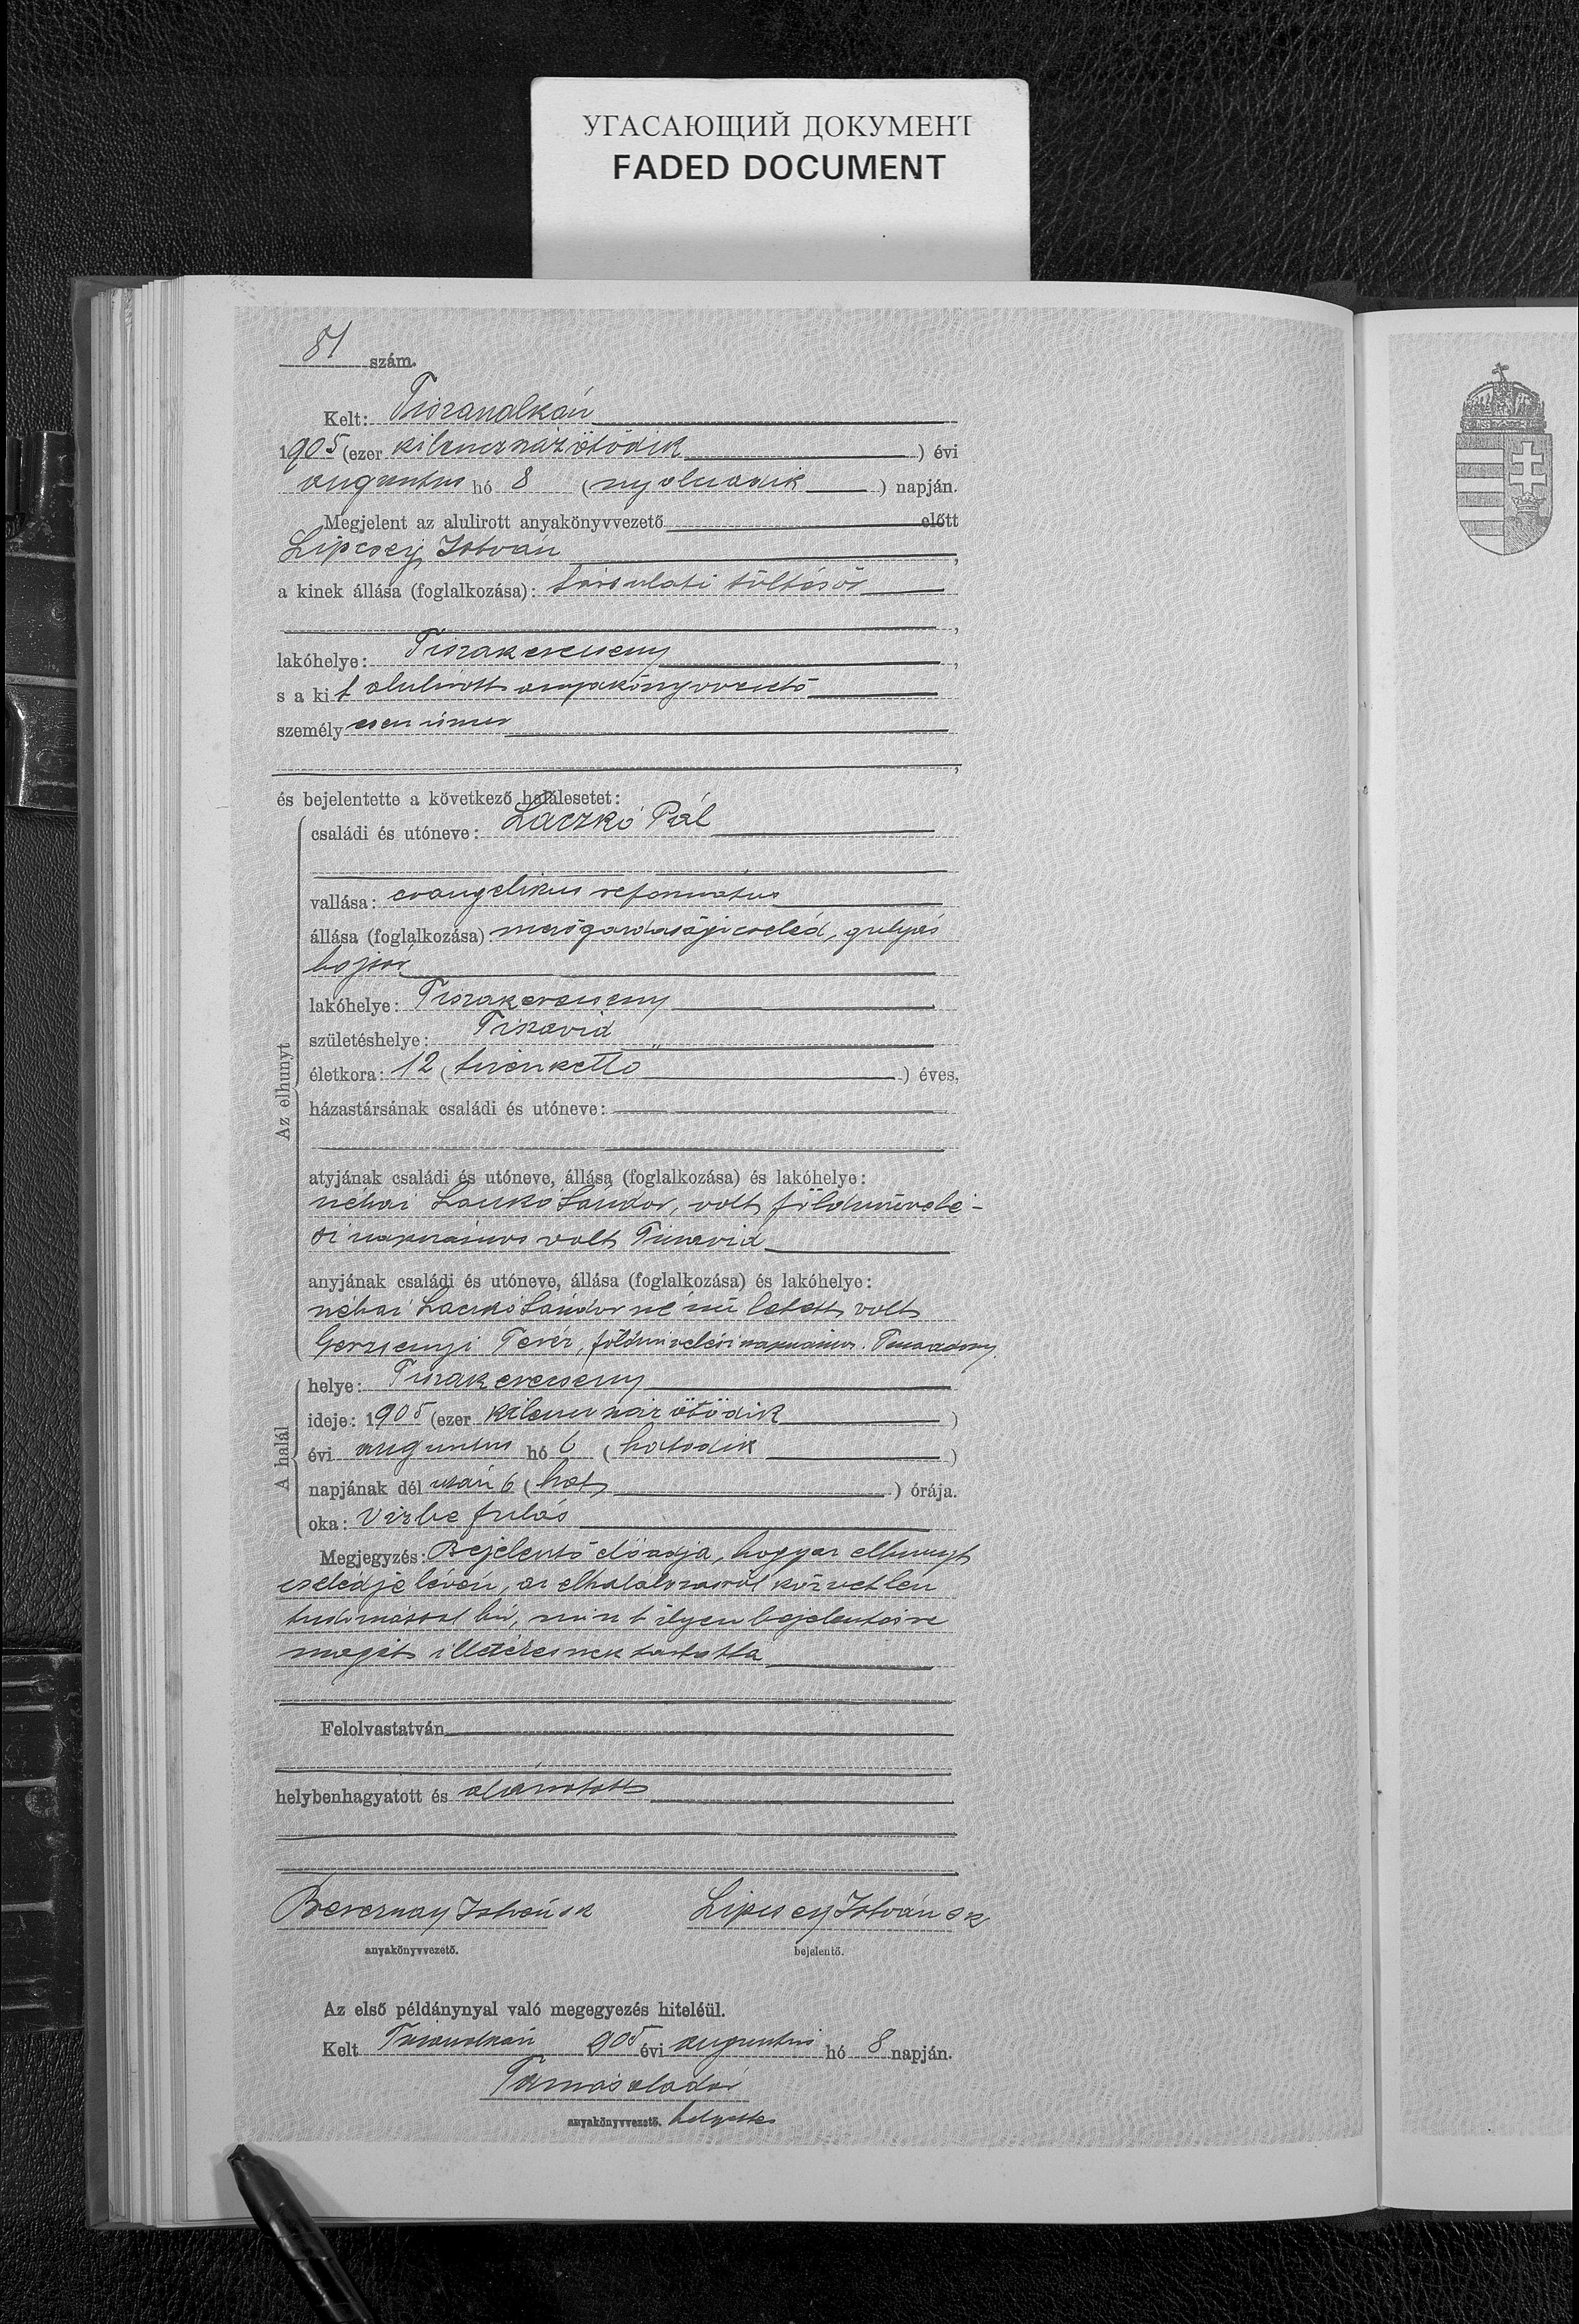 УГАСАЮЩИЙ ДОКУМЕНТ
FADED DOCUMENT
81 szám.
Kelt:
1905 (ezer kilencszáz ötödik) évi
augusztus hó 8 (nyolcadik) napján.
Megjelent az alulirott anyakönyvvezető előtt
Lipcsey István,
a kinek állása (foglalkozása): társulati töltésőr
,
lakóhelye: Tiszakerecseny,
s a kit alulirott anyakönyvvezető
személyesen ismer
,
és bejelentette a következő halálesetet:
Az elhunyt
családi és utóneve: Laczkó Pál
vallása: evangelikus református
állása (foglalkozása): mezőgazdasági cseléd, gulyás
bojtár
lakóhelye: Tiszakerecseny
születéshelye: Tiszavid
életkora: 12 (tizenkettő) éves,
házastársának családi és utóneve:
atyjának családi és utóneve, állása (foglalkozása) és lakóhelye:
néhai Laczkó Sándor, volt földmivelé-
si napszámos volt Tiszavid
anyjának családi és utóneve, állása (foglalkozása) és lakóhelye:
néhai Laczkó Sándorné szü letett volt
Gerzsenyi Teréz, földmivelési napszámos.
A halál
helye: Tiszakerecseny
ideje: 1905 (ezer kilencszáz ötödik)
évi augusztus hó 6 (hatodik)
napjának dél után 6 (hat) órája.
oka: Vizbe fulás
Megjegyzés: Bejelentő előadja, hogy az elhunyt
cselédje lévén, az elhalálozásról közvetlen
tudomással bir, mint ilyen bejelentésre
magát illetékesnek tartotta
Felolvastatván
helybenhagyatott és aláiratott
István sk
anyakönyvvezető.
Lipcsey István sk
bejelentő.
Az első példánynyal való megegyezés hiteléül.
Kelt 1905 évi augusztus hó 8 napján.
Tamás Aladár
anyakönyvvezető. helyettes